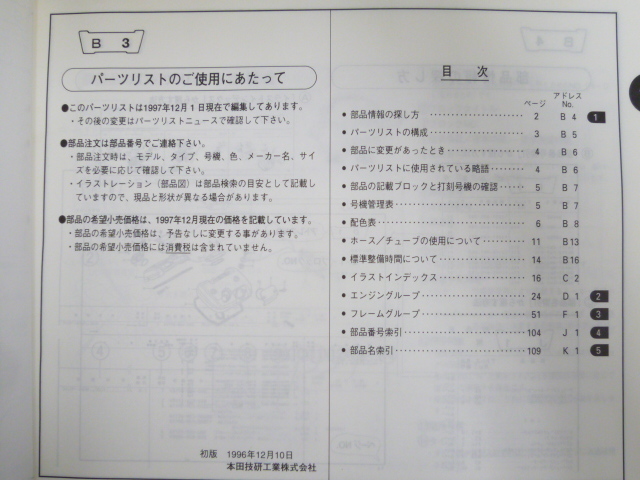 B 3
パーツリストのご使用にあたって
●このパーツリストは1997年12月1日現在で編集してあります。
・その後の変更はパーツリストニュースで確認して下さい。
●部品注文は部品番号でご連絡下さい。
・部品注文時は、モデル、タイプ、号機、色、メーカー名、サイ
ズを必要に応じて確認して下さい。
・イラストレーション（部品図）は部品検索の目安として記載し
ていますので、現品と形状が異なる場合があります。
●部品の希望小売価格は、1997年12月現在の価格を記載しています。
・部品の希望小売価格は、予告なしに変更する事があります。
・部品の希望小売価格には消費税は含まれていません。
初版 1996年12月10日
本田技研工業株式会社
目 次
アドレス
ページ No.
● 部品情報の探し方 ･････････････････ 2 B 4 1
● パーツリストの構成 ･････････････････ 3 B 5
● 部品に変更があったとき ･････････････････ 4 B 6
● パーツリストに使用されている略語 ･････････････････ 4 B 6
● 部品の記載ブロックと打刻号機の確認 ･････････････････ 5 B 7
● 号機管理表 ･････････････････ 5 B 7
● 配色表 ･････････････････ 6 B 8
● ホース／チューブの使用について ･････････････････ 11 B13
● 標準整備時間について ･････････････････ 14 B16
● イラストインデックス ･････････････････ 16 C 2
● エンジングループ ･････････････････ 24 D 1 2
● フレームグループ ･････････････････ 51 F 1 3
● 部品番号索引 ･････････････････ 104 J 1 4
● 部品名索引 ･････････････････ 109 K 1 5